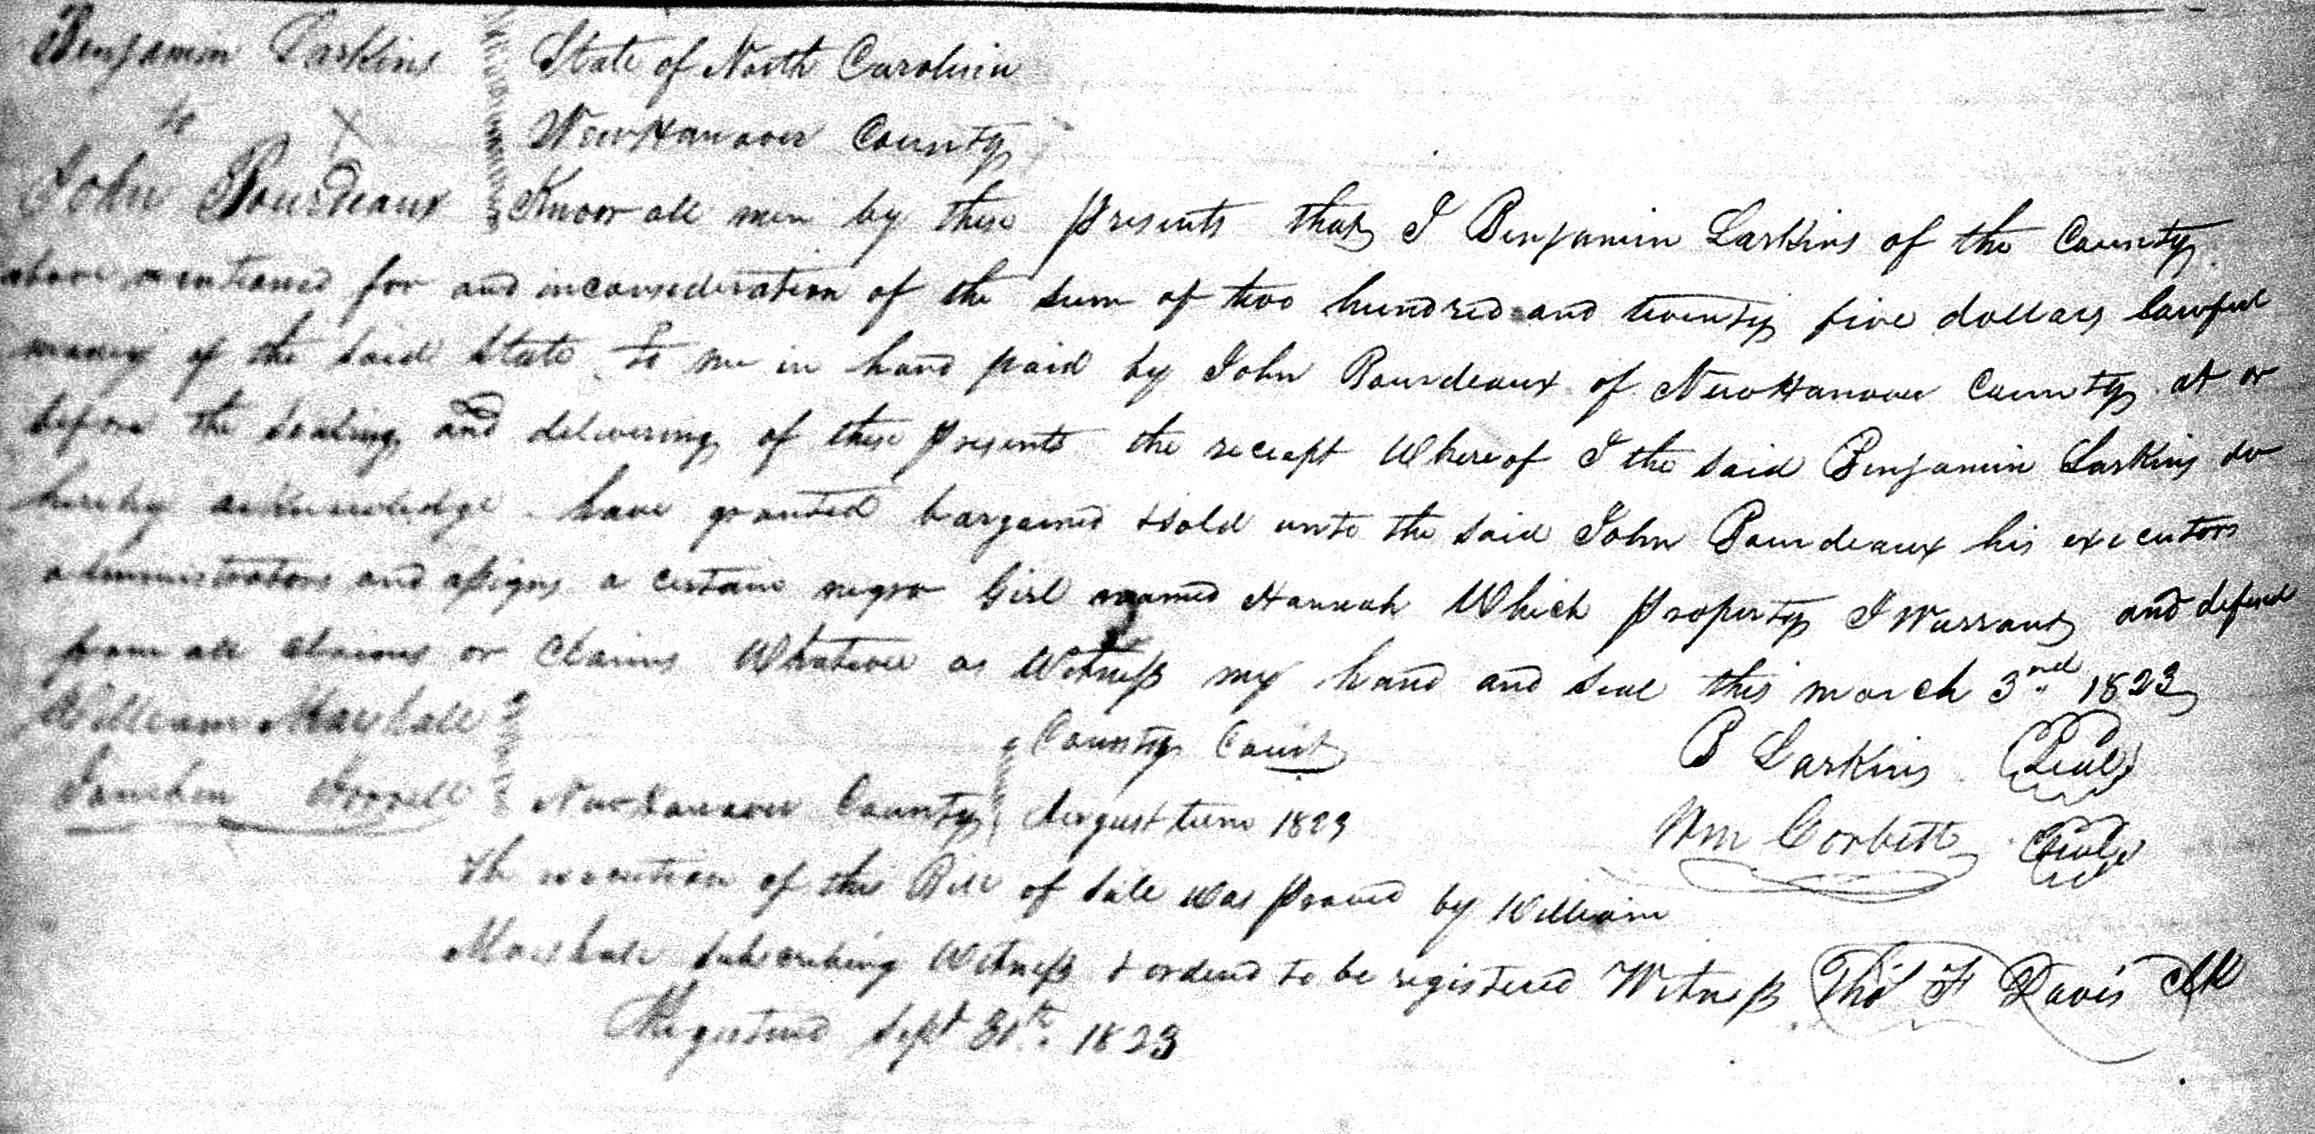 Benjamin Larkins
to
John Bourdeaux
State of North Carolina
New Hanover County
Know all men by these presents that I Benjamin Larkins of the County
above mentioned for and inconsideration of the sum of two hundred and twenty five dollars lawful
money of the said State to me in hand paid by John Bourdeaux of New Hanover County at or
before the sealing and delivering of these presents the reciept Whereof I the said Benjamin Larkins do
hereby acknowledge have granted bargained & sold unto the said John Bourdeaux his executors
administrators and assigns a certain negro Girl named Hannah Which property I Warrant and defend
from all claims or claims Whatever as Witness my hand and seal this march 3nd 1823
William Marshall
B Larkins Seal
County Court
New Hanover County August term 1823
Wm Corbett Seal
The execution of this Bill of sale was proved by William
Marshall subscribing Witness & ordered to be registered Witness Thos F Davis Clk
Registered Sept 30th 1823